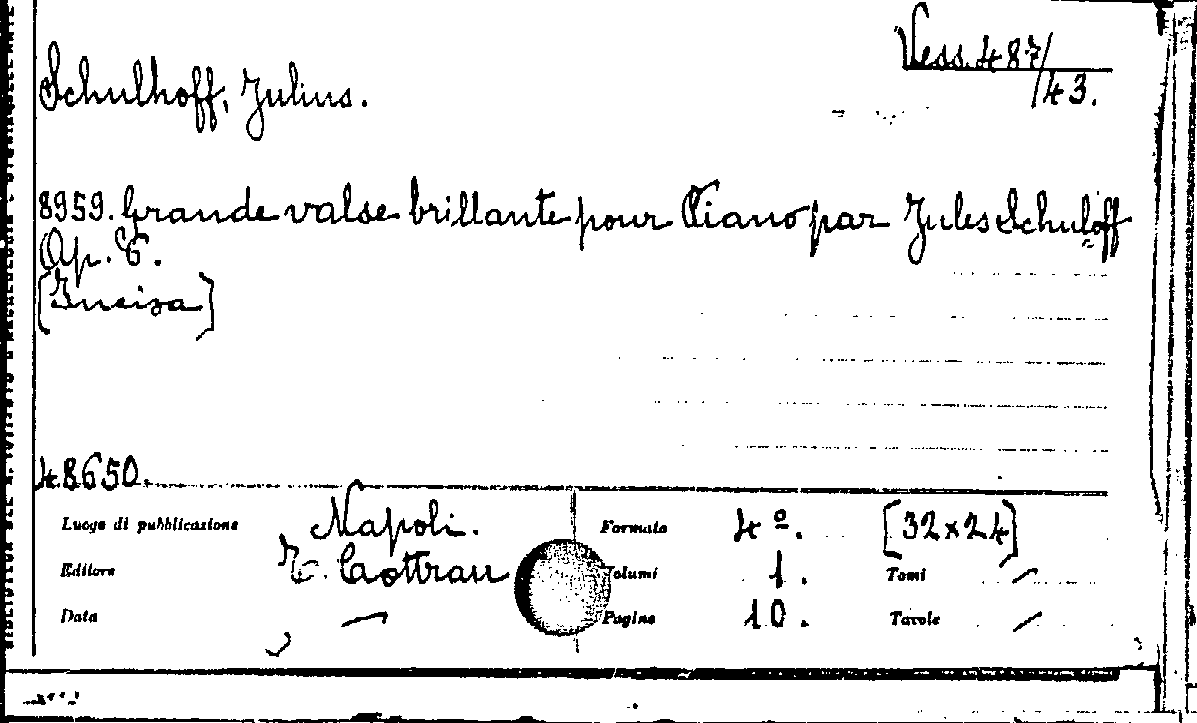 Vess. 487/
43.
Schulhoff, Julius.
8959. Grande valse brillante pour Piano par Jules Schuloff
Op. 6.
[Incisa]
48650.
Luogo di pubblicazione Napoli. Formato 4º. [32x24]
Editore T. Cottrau Volumi 1. Tomi /
Data — Pagine 10. Tavole /